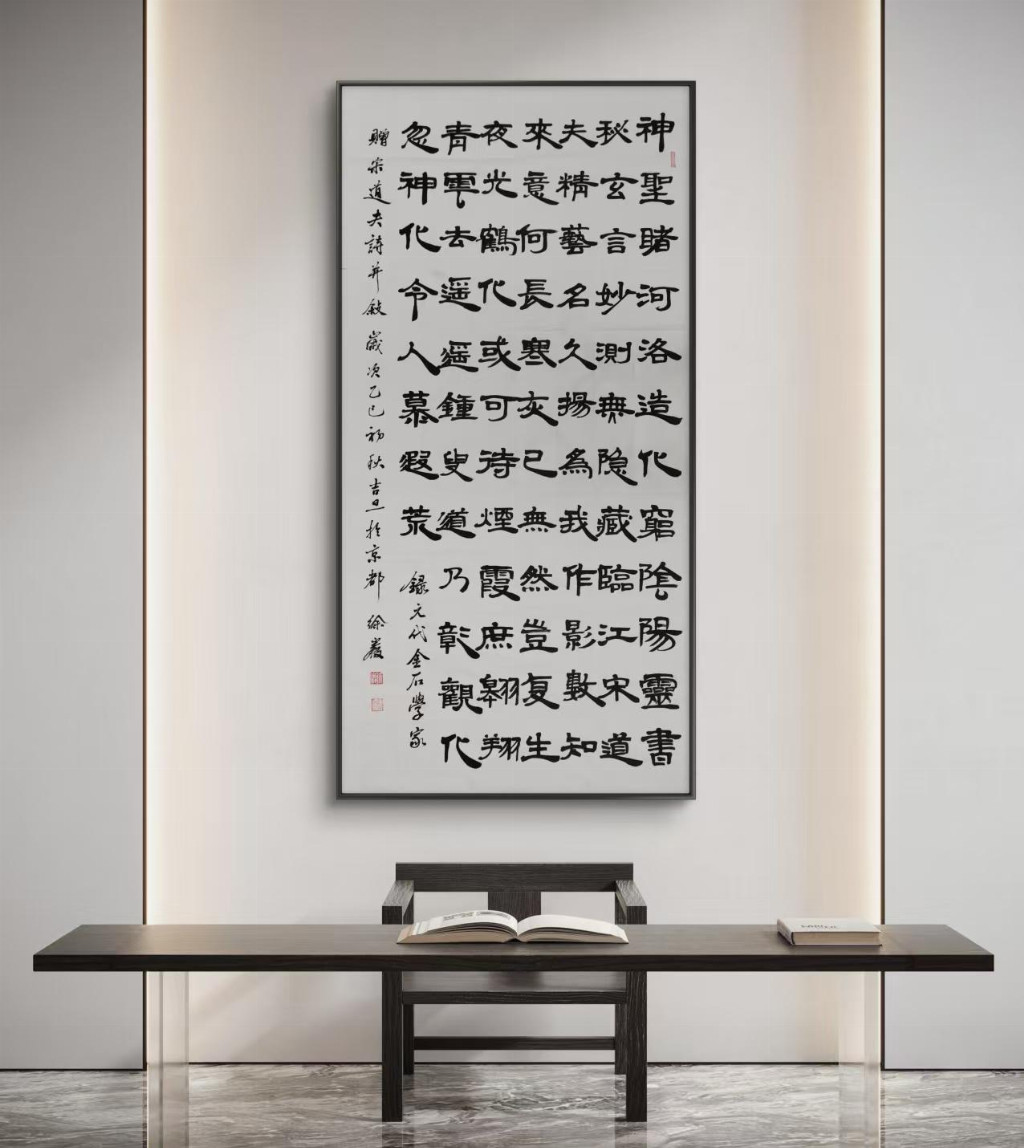 神聖睹河洛造化窮陰陽靈書
秘玄言妙測無隐藏臨江宋道
夫精藝名久揚為我作影數知
來意何長寒灰已無然豈复生
夜光鶴化或可待煙霞庶翱翔
青雲去遥遥鍾叟道乃彰觀化
忽神化令人慕遐荒 録元代金石學家
贈宋道夫詩并敘 歲次乙巳初秋吉旦於京都 徐